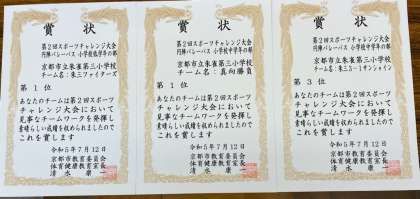 賞状
第2回スポーツチャレンジ大会
円陣バレーパス 小学校低学年の部
京都市立朱雀第三小学校
チーム名:朱三ファイターズ
第 1 位
あなたのチームは第2回スポーツ
チャレンジ大会において
見事なチームワークを発揮し
素晴らしい成績を収められましたので
これを賞します
令和5年7月12日
京都市教育委員会
体育健康教育室長
清水 康一
賞状
第2回スポーツチャレンジ大会
円陣バレーパス 小学校中学年の部
京都市立朱雀第三小学校
チーム名:真向勝負
第 1 位
あなたのチームは第2回スポーツ
チャレンジ大会において
見事なチームワークを発揮し
素晴らしい成績を収められましたので
これを賞します
令和5年7月12日
京都市教育委員会
体育健康教育室長
清水 康一
賞状
第2回スポーツチャレンジ大会
円陣バレーパス 小学校中学年の部
京都市立朱雀第三小学校
チーム名:朱三1サンシャイン
第 3 位
あなたのチームは第2回スポーツ
チャレンジ大会において
見事なチームワークを発揮し
素晴らしい成績を収められましたので
これを賞します
令和5年7月12日
京都市教育委員会
体育健康教育室長
清水 康一